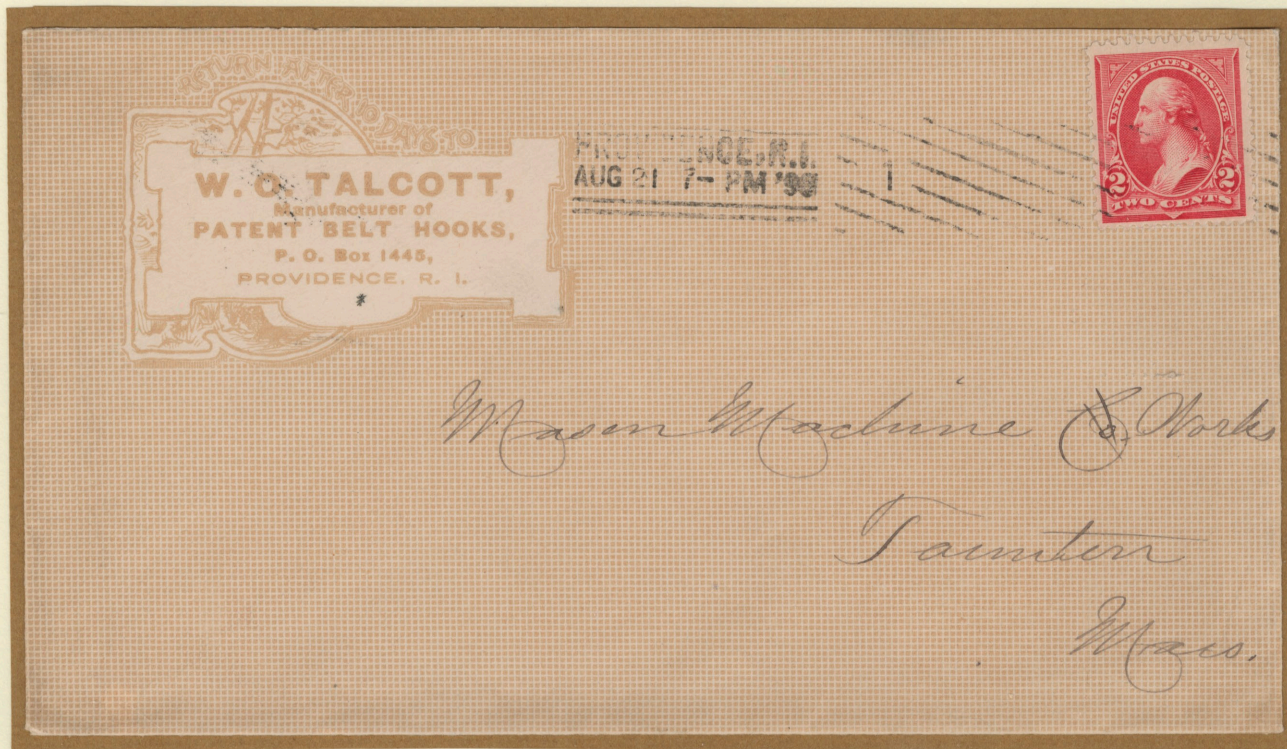 RETURN AFTER 10 DAYS TO
W. O. TALCOTT,
Manufacturer of
PATENT BELT HOOKS,
P. O. Box 1445,
PROVIDENCE, R. I.
PROVIDENCE, R.I.
AUG 21 7- PM
1
UNITED STATES POSTAGE
2 2
TWO CENTS
Mason Machine Co. Works
Taunton
Mass.